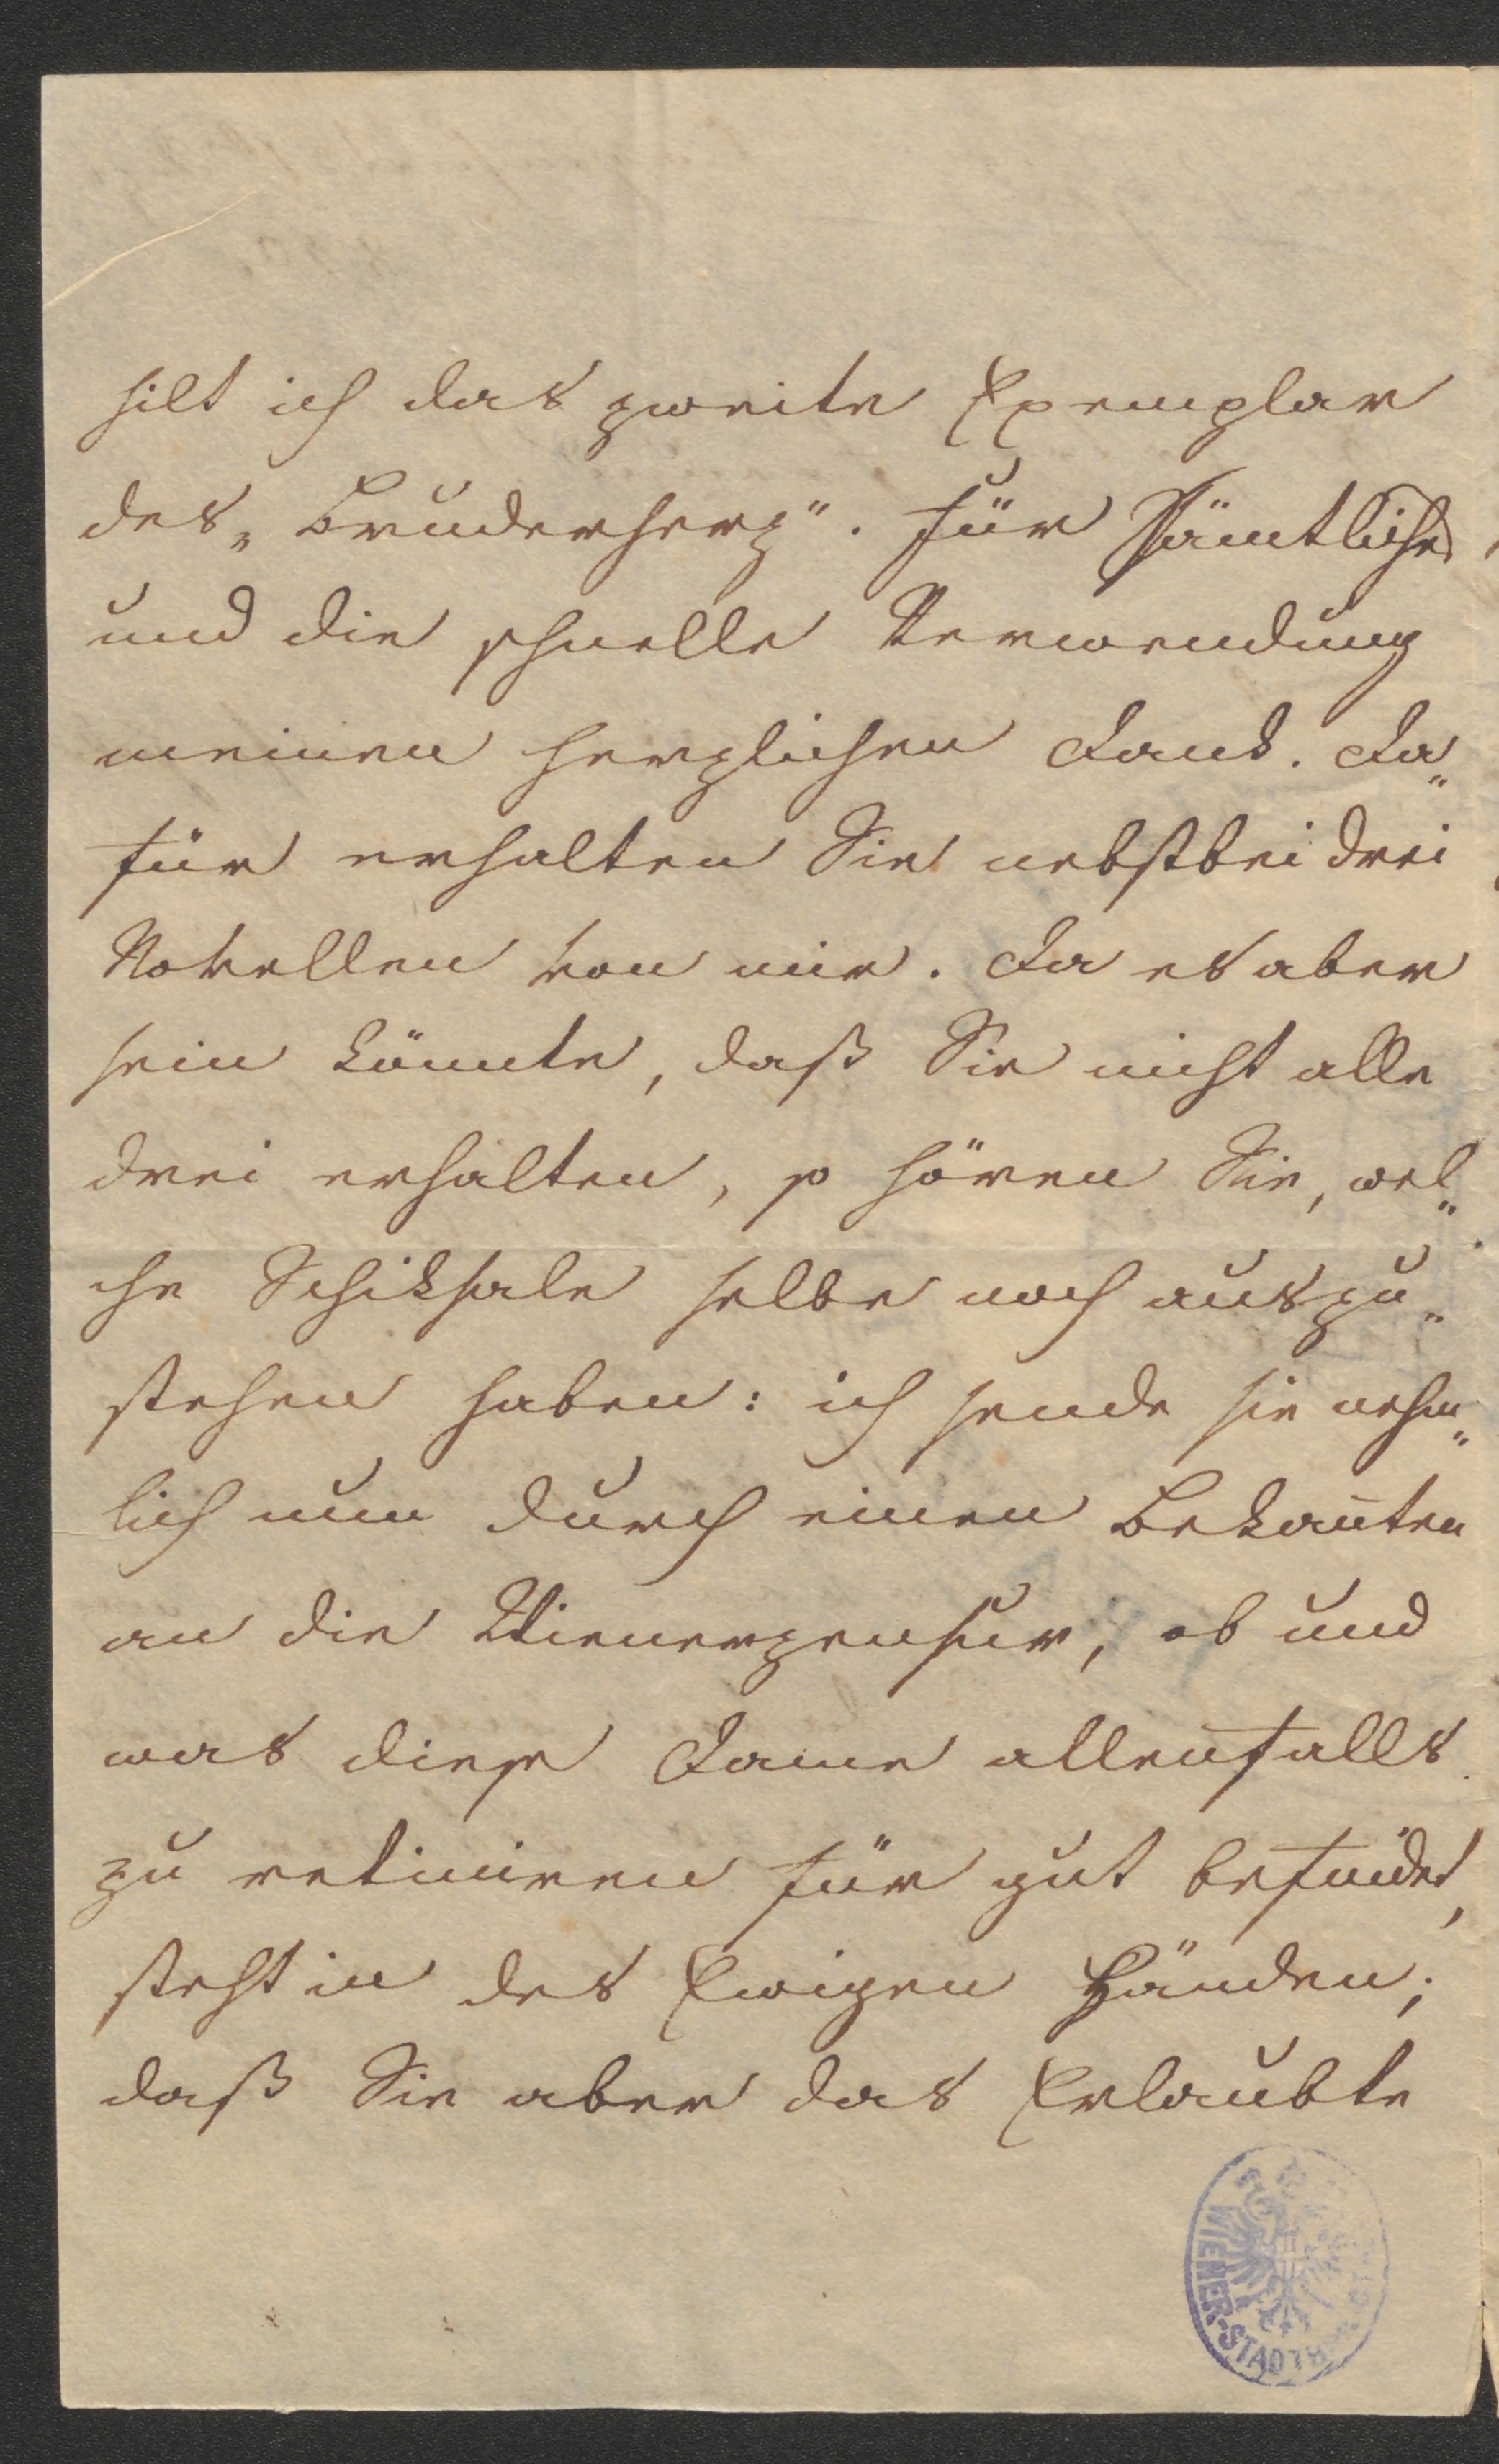 hilt ich das zweite Exemplar
des „Bruderherz". Für Sämtliche
und die schnelle Verwendung
meinen herzlichen Dank. Da„
für erhalten Sie nebstbei drei
Novellen von mir. Da es aber
sein könnte, daß Sie nicht alle
drei erhalten, so hören Sie, wel„
che Schiksale selbe noch auszu„
stehen haben: ich sende sie nehm„
lich nun durch einen Bekan̄ten
an die Wienerzensur, ob und
was diese Dame allenfalls
zu retiniren für gut befindet,
steht in des Ewigen Händen;
daß Sie aber das Erlaubte
WIENER-STADTB